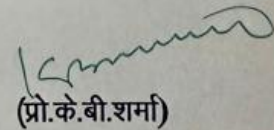 (प्रो.के.बी.शर्मा)